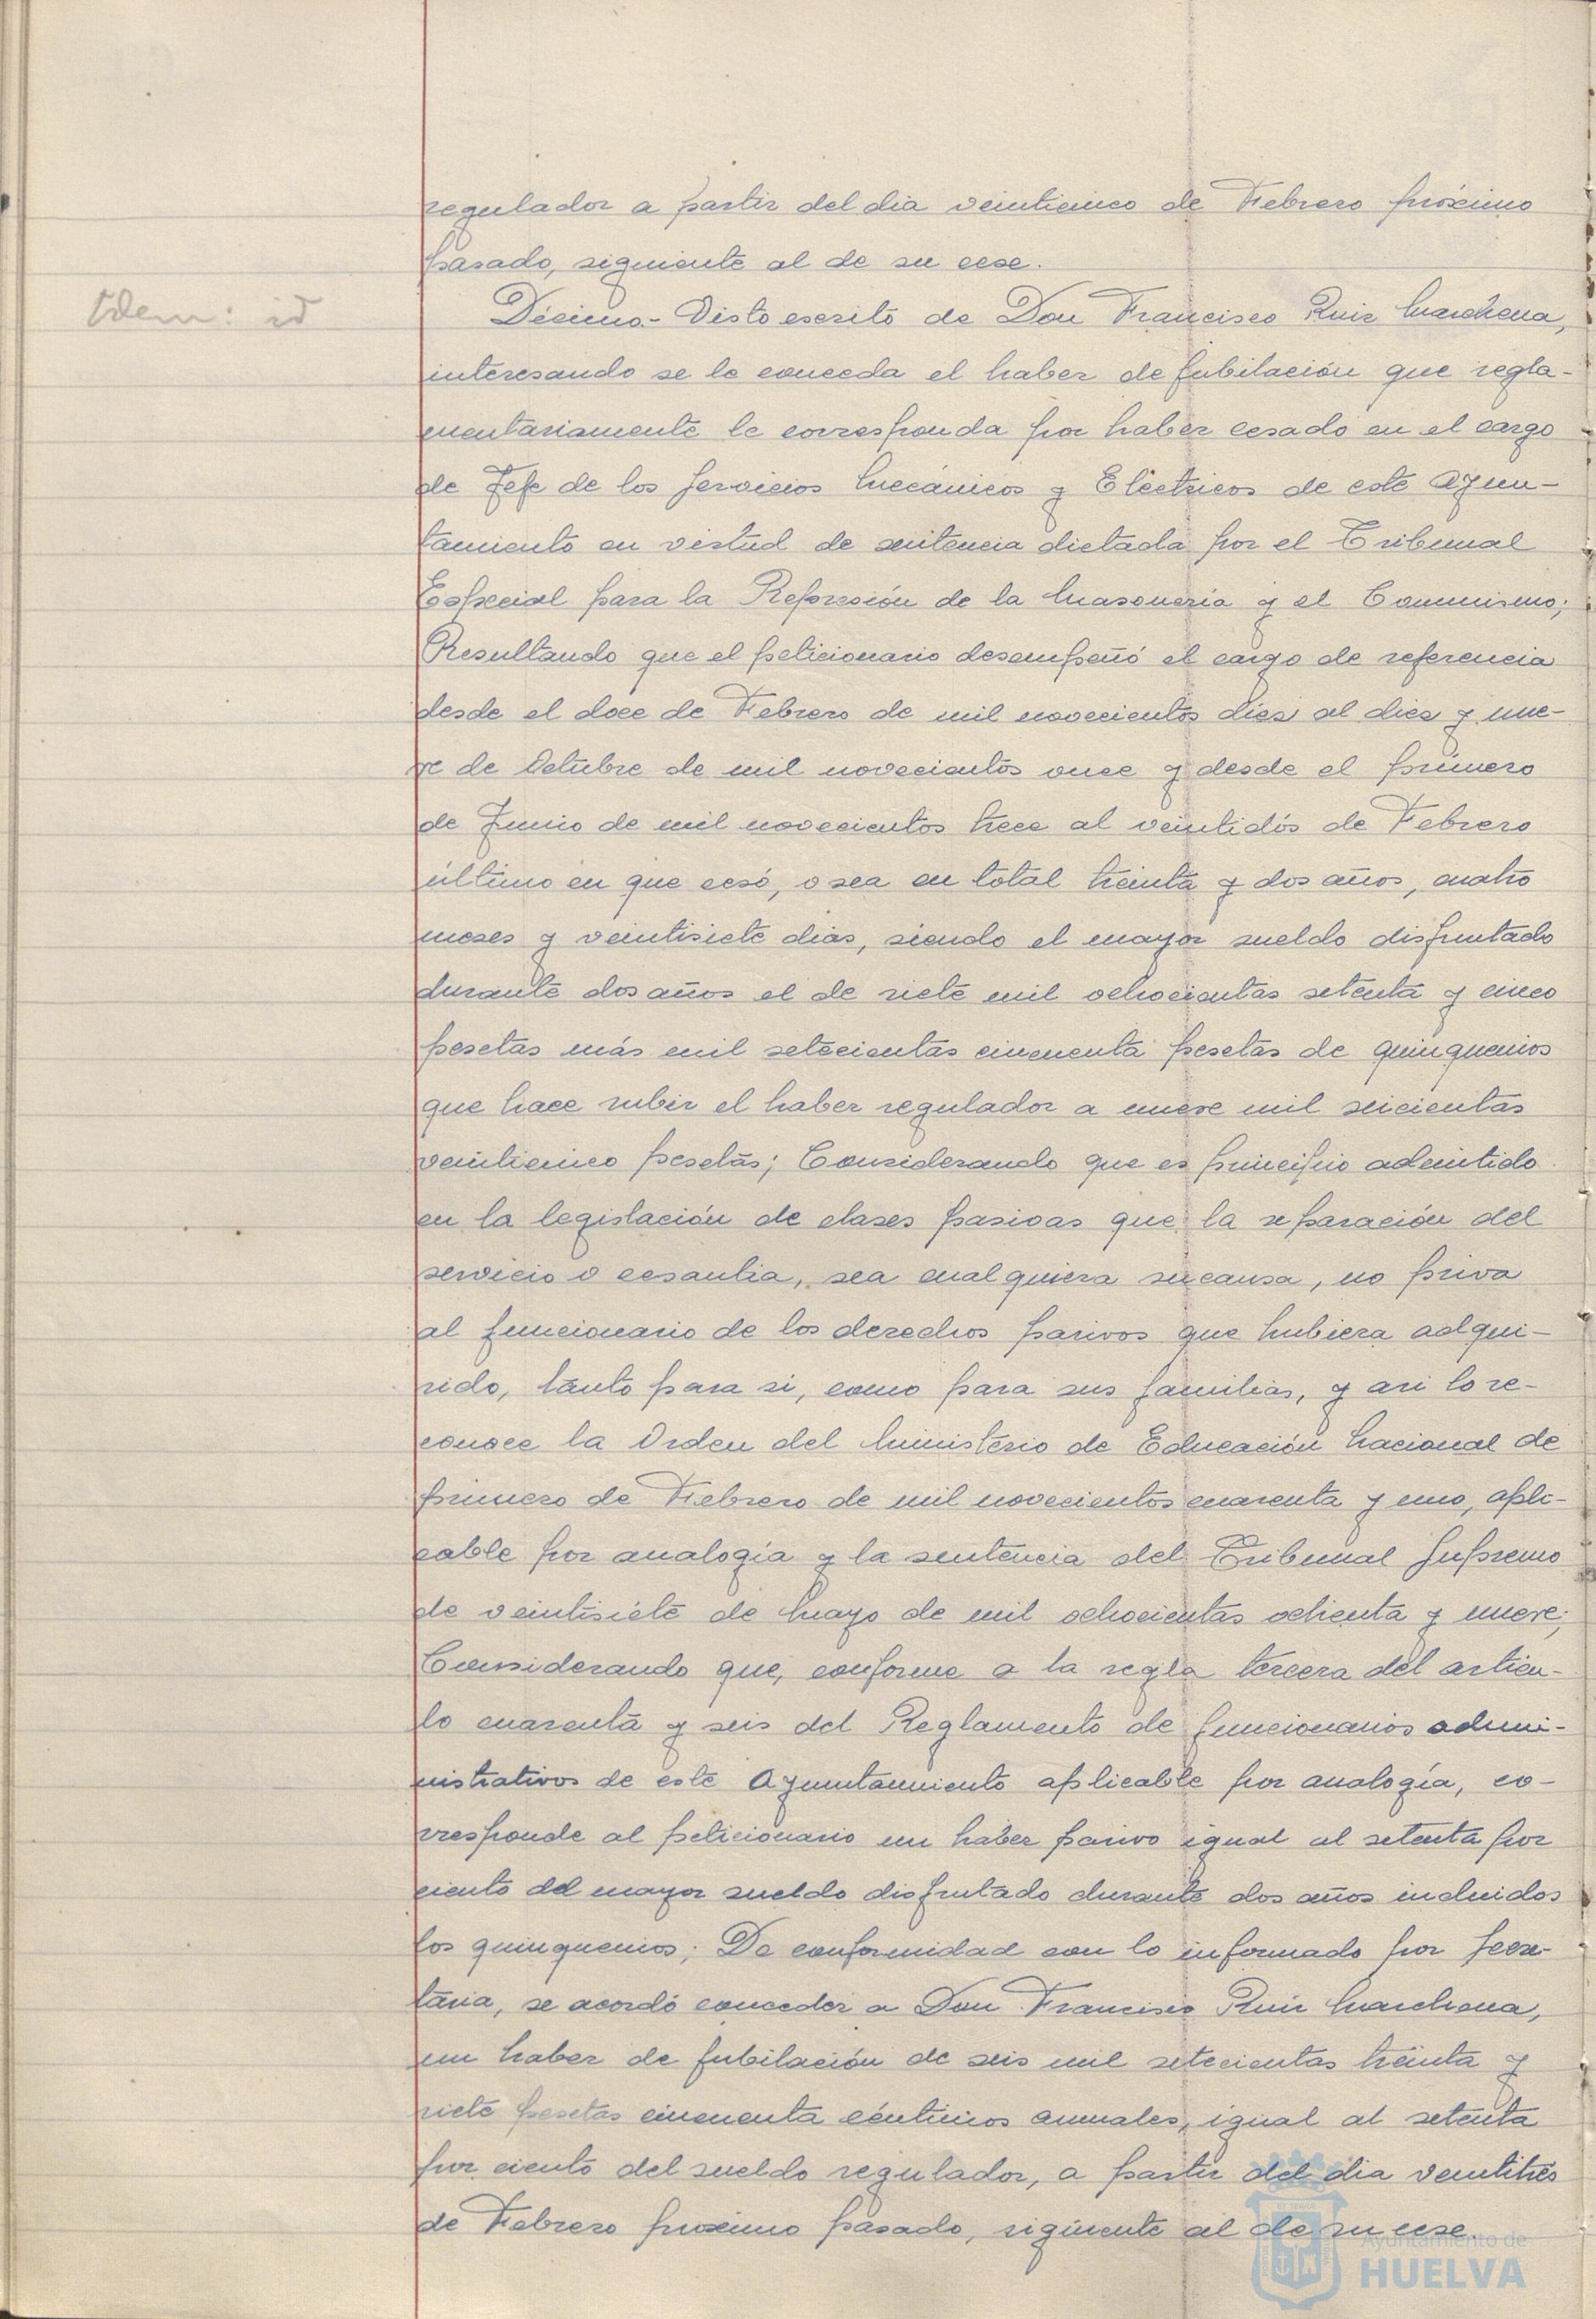 regulador a partir del dia veinticinco de Febrero próximo
pasado, siguiente al de su cese.
Idem: id
Décimo.- Visto escrito de Don Francisco Ruiz Marchena,
interesando se le conceda el haber de jubilación que regla-
mentariamente le corresponda por haber cesado en el cargo
de Jefe de los Servicios Mecánicos y Eléctricos de este Ayun-
tamiento en virtud de sentencia dictada por el Tribunal
Especial para la Represión de la Masonería y el Comunismo;
Resultando que el peticionario desempeñó el cargo de referencia
desde el doce de Febrero de mil novecientos diez al diez y nue-
ve de Octubre de mil novecientos once y desde el primero
de Junio de mil novecientos trece al veintidós de Febrero
último en que cesó, o sea en total treinta y dos años, cuatro
meses y veintisiete dias, siendo el mayor sueldo disfrutado
durante dos años el de siete mil ochocientas setenta y cinco
pesetas más mil setecientas cincuenta pesetas de quinquenios
que hace subir el haber regulador a nueve mil seicientas
veinticinco pesetas; Considerando que es principio admitido
en la legislación de clases pasivas que la separación del
servicio o cesantia, sea cualquiera su causa, no priva
al funcionario de los derechos pasivos que hubiera adqui-
rido, tanto para si, como para sus familias, y asi lo re-
conoce la Orden del Ministerio de Educación Nacional de
primero de Febrero de mil novecientos cuarenta y uno, apli-
cable por analogía y la sentencia del Tribunal Supremo
de veintisiete de Mayo de mil ochocientas ochenta y nueve;
Considerando que, conforme a la regla tercera del artícu-
lo cuarenta y seis del Reglamento de funcionarios admi-
nistrativos de este Ayuntamiento aplicable por analogía, co-
rresponde al peticionario un haber pasivo igual al setenta por
ciento del mayor sueldo disfrutado durante dos años incluidos
los quinquenios; De conformidad con lo informado por Secre-
taria, se acordó conceder a Don Francisco Ruiz Marchena,
un haber de jubilación de seis mil setecientas treinta y
siete pesetas cincuenta céntimos anuales, igual al setenta
por ciento del sueldo regulador, a partir del dia veintitrés
de Febrero proximo pasado, siguiente al de su cese.
Ayuntamiento de
HUELVA